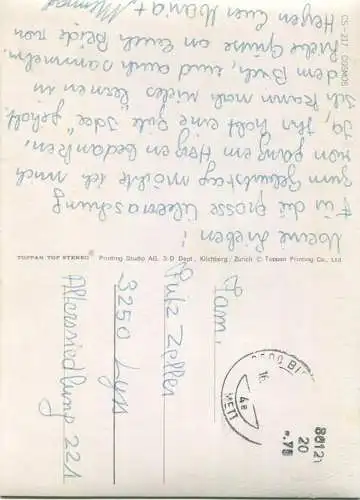 Meine Lieben!
Für die grosse Ueberraschung
zum Geburtstag möchte ich mich
von ganzem Herzen bedanken,
Ja, Ihr habt eine gute "Idee" gehabt.
Ich kann noch vieles lernen in
dem Buch, und auch sammeln.
Viele Grüsse an Euch Beide von
Herzen Euer Maria +
CS-237 COSMOS
TOPPAN TOP STEREO® Printing Studio AG, 3-D Dept., Kilchberg/Zürich © Toppan Printing Co., Ltd
METT
16.
88121
20
-.75
Fam.
Fritz Zeller
3250 Lyss
Alterssiedlung 221